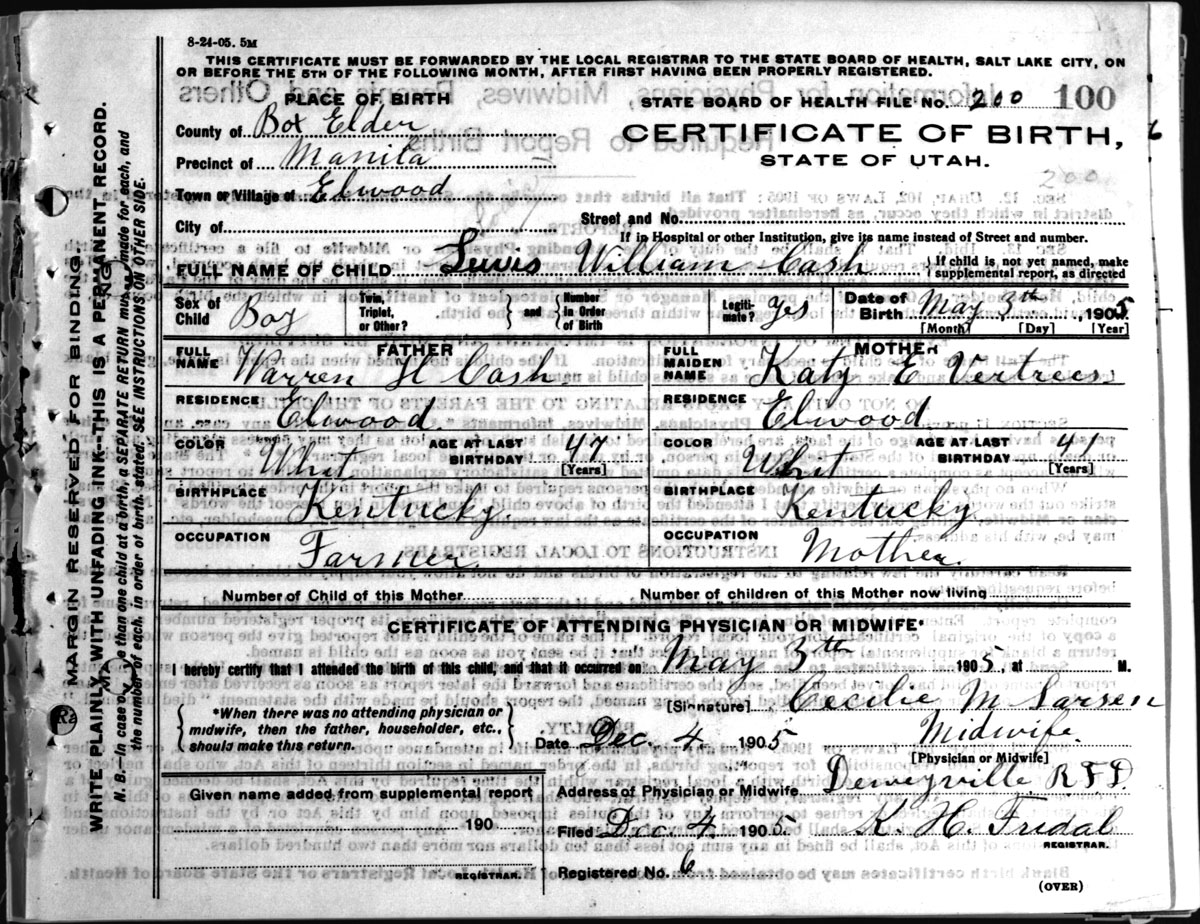 8-24-05. 5M
THIS CERTIFICATE MUST BE FORWARDED BY THE LOCAL REGISTRAR TO THE STATE BOARD OF HEALTH, SALT LAKE CITY, ON
OR BEFORE THE 5TH OF THE FOLLOWING MONTH, AFTER FIRST HAVING BEEN PROPERLY REGISTERED.
PLACE OF BIRTH
STATE BOARD OF HEALTH FILE No. 200 100
County of Box Elder
CERTIFICATE OF BIRTH,
Precinct of Manila
STATE OF UTAH.
200
Town or Village of Elwood
City of
Street and No.
If in Hospital or other Institution, give its name instead of Street and number.
FULL NAME OF CHILD Lewis William Cash
} If child is, not yet named, make
supplemental report, as directed
Sex of Child Boy
Twin, Triplet, or Other?
} and {
Number in Order of Birth
Legiti-mate? yes
Date of Birth May 3th, 1905
[Month] [Day] [Year]
FATHER
FULL NAME Warren H Cash
RESIDENCE Elwood.
COLOR Whit AGE AT LAST BIRTHDAY 47
[Years]
BIRTHPLACE Kentucky
OCCUPATION Farmer.
MOTHER
FULL MAIDEN NAME Katy E Vertrees
RESIDENCE Elwood
COLOR Whit AGE AT LAST BIRTHDAY 41
[Years]
BIRTHPLACE Kentucky
OCCUPATION Mother.
Number of Child of this Mother
Number of children of this Mother now living
CERTIFICATE OF ATTENDING PHYSICIAN OR MIDWIFE*
I hereby certify that I attended the birth of this child, and that it occurred on May 3th 1905, at M.
[Signature] Cecilie M Larsen
{ *When there was no attending physician or
midwife, then the father, householder, etc.,
should make this return. }
Date Dec. 4 1905
Midwife.
[Physician or Midwife]
Given name added from supplemental report
190
REGISTRAR.
Address of Physician or Midwife Deweyville R F D.
Filed Dec. 4 1905 K. H. Fridal
REGISTRAR.
Registered No. 6
(OVER)
MARGIN RESERVED FOR BINDING.
WRITE PLAINLY WITH UNFADING INK--THIS IS A PERMANENT RECORD.
N. B.—In case of more than one child at a birth, a SEPARATE RETURN must be made for each, and
the number of each, in order of birth, stated. SEE INSTRUCTIONS ON OTHER SIDE.